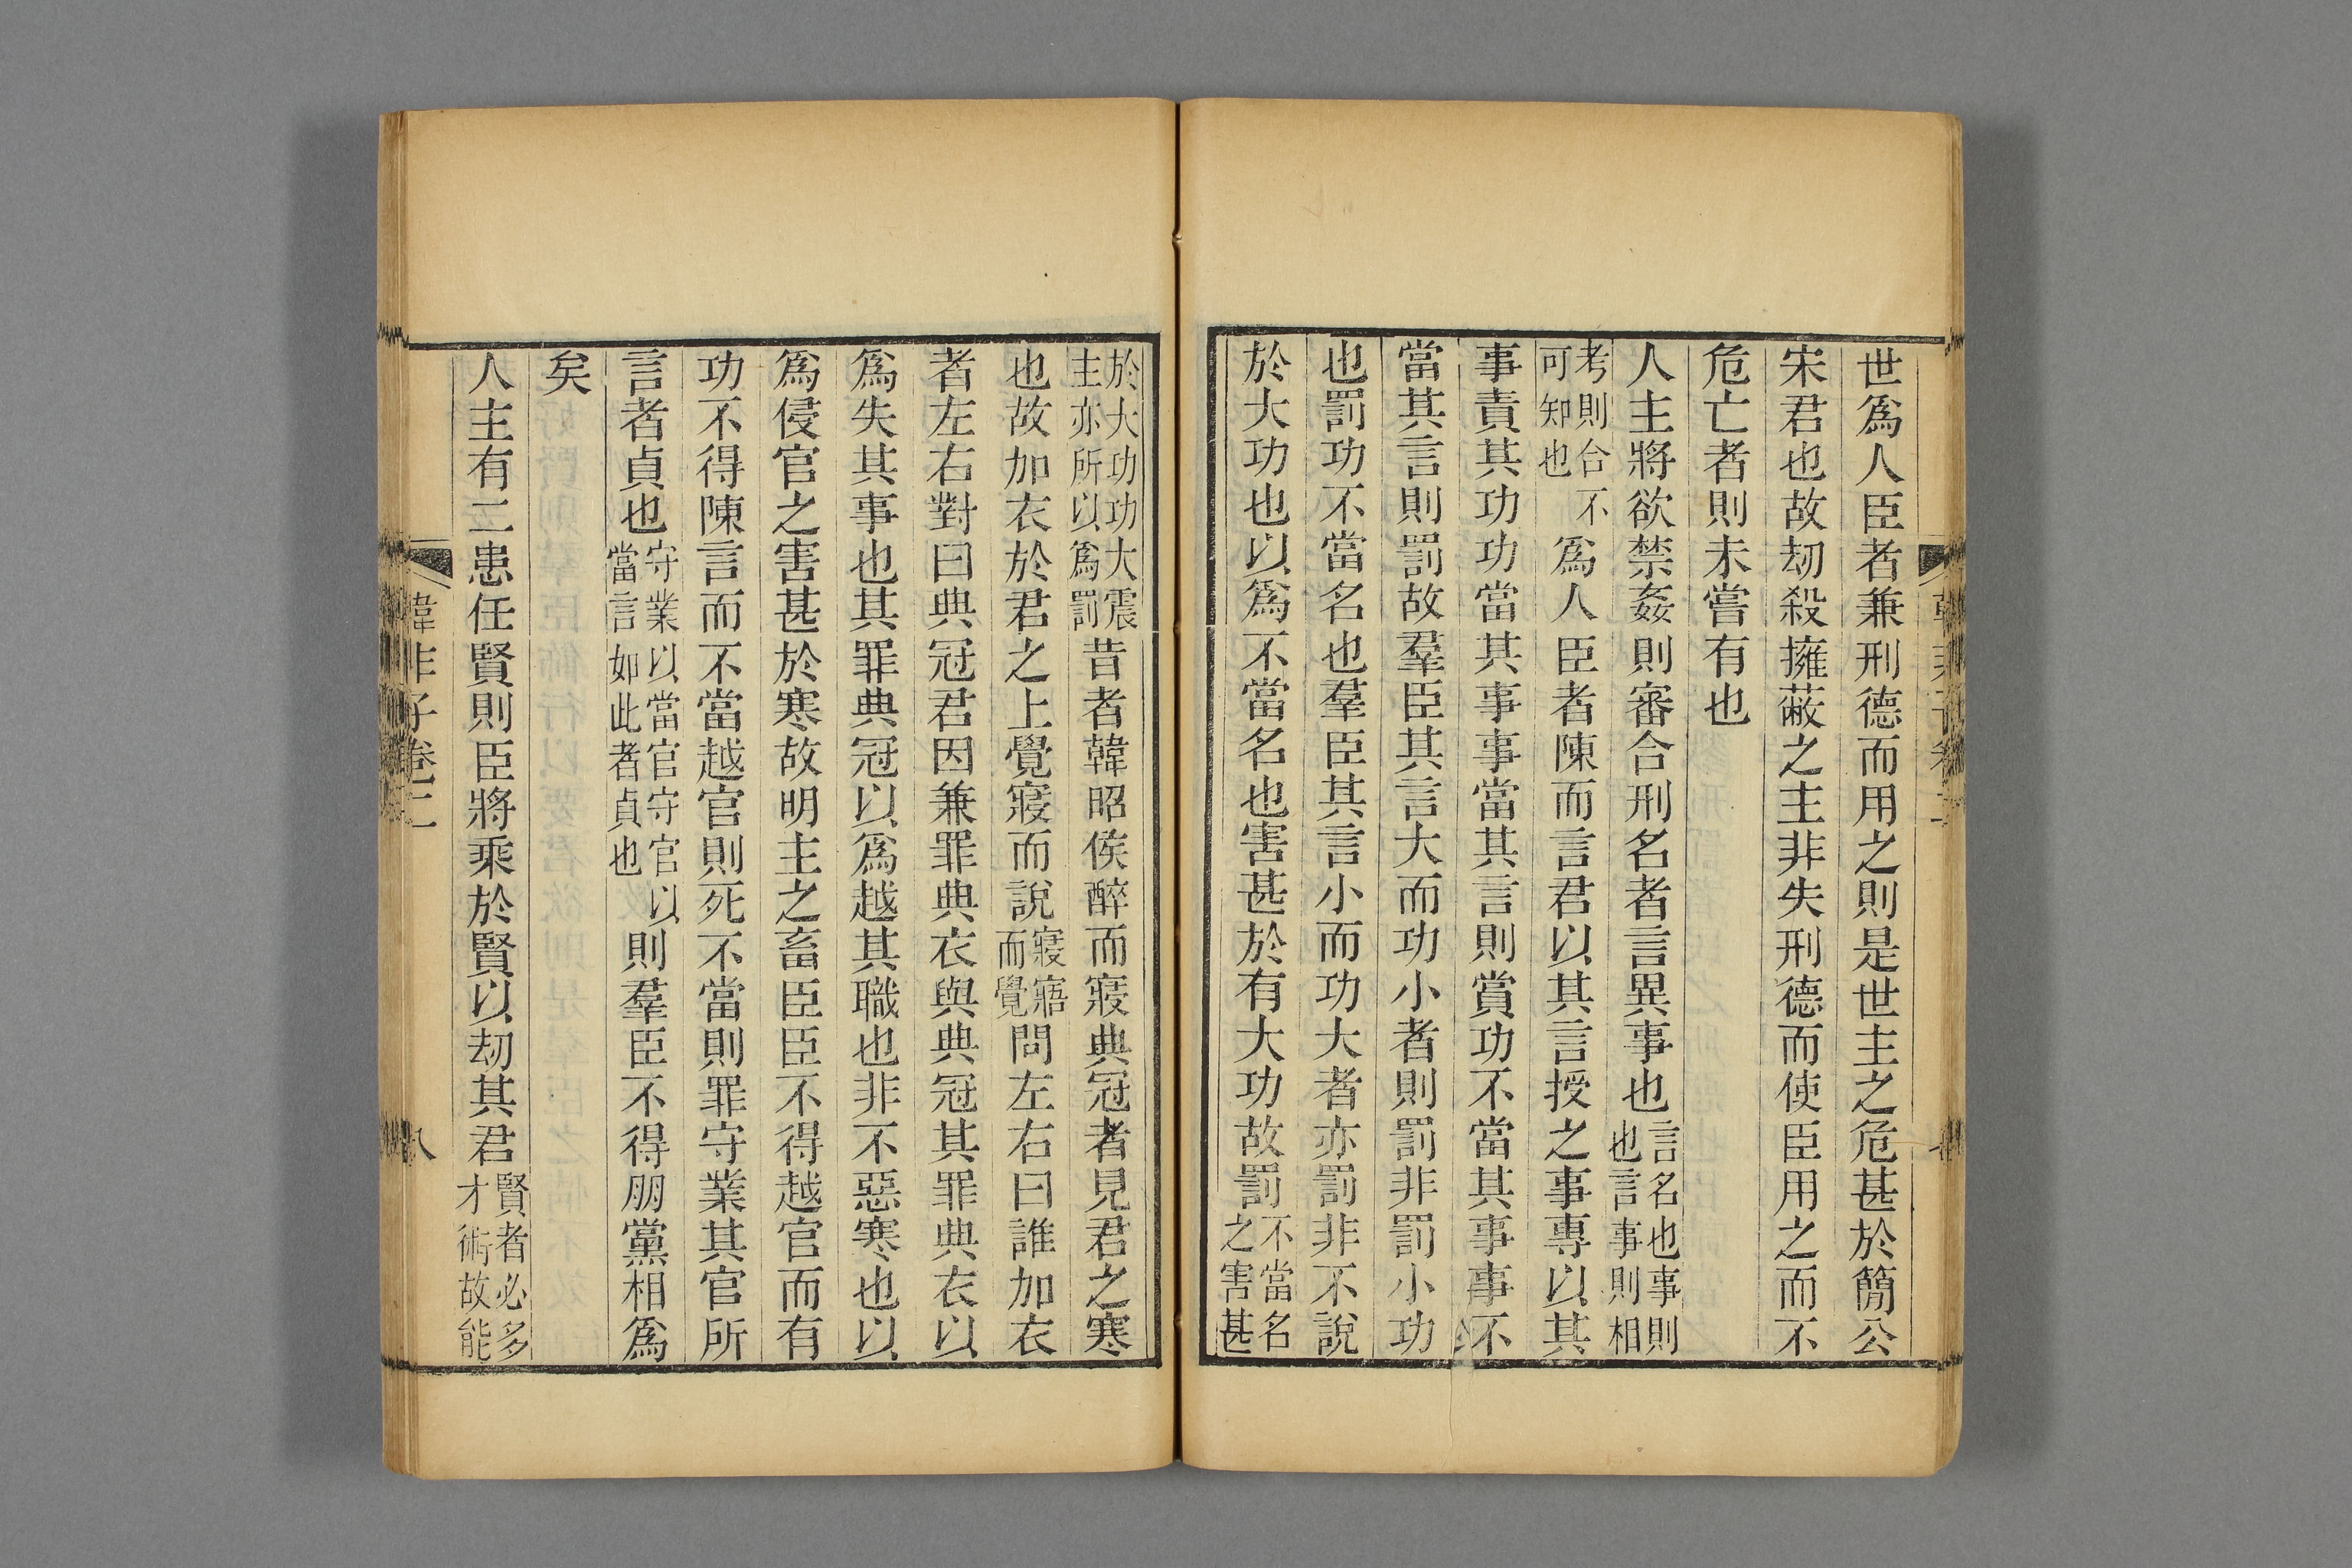 世爲人臣者兼刑德而用之則是世主之危甚於簡公
宋君也故劫殺擁蔽之主非失刑德而使臣用之而不
危亡者則未嘗有也
人主將欲禁姦則審合刑名者言異事也言名也事則也言事則相
考則合不可知也爲人臣者陳而言君以其言授之事事專以其
事責其功功當其事事當其言則賞功不當其事事不
當其言則罰故羣臣其言大而功小者則罰非罰小功
也罰功不當名也羣臣其言小而功大者亦罰非不說
於大功也以爲不當名也害甚於有大功故罰不當名之害甚
於大功功大震主亦所以爲罰昔者韓昭侯醉而寢典冠者見君之寒
也故加衣於君之上覺寢而說寢寤而覺問左右曰誰加衣
者左右對曰典冠君因兼罪典衣與典冠其罪典衣以
爲失其事也其罪典冠以爲越其職也非不惡寒也以
爲侵官之害甚於寒故明主之畜臣臣不得越官而有
功不得陳言而不當越官則死不當則罪守業其官所
言者貞也守業以當官守官以當言如此者貞也則羣臣不得朋黨相爲
矣
人主有二患任賢則臣將乘於賢以劫其君賢者必多才術故能
韓非子卷二
八